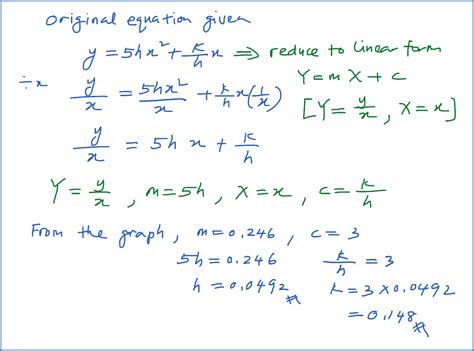 Original equation given
y = 5hx² + k/h x ⇒ reduce to linear form
Y = mX + c
÷x y/x = 5hx²/x + k/h x(1/x) [Y = y/x, X = x]
y/x = 5hx + k/h
Y = y/x, m = 5h, X = x, c = k/h
From the graph, m = 0.246, c = 3
5h = 0.246 k/h = 3
h = 0.0492 k = 3 × 0.0492
= 0.148